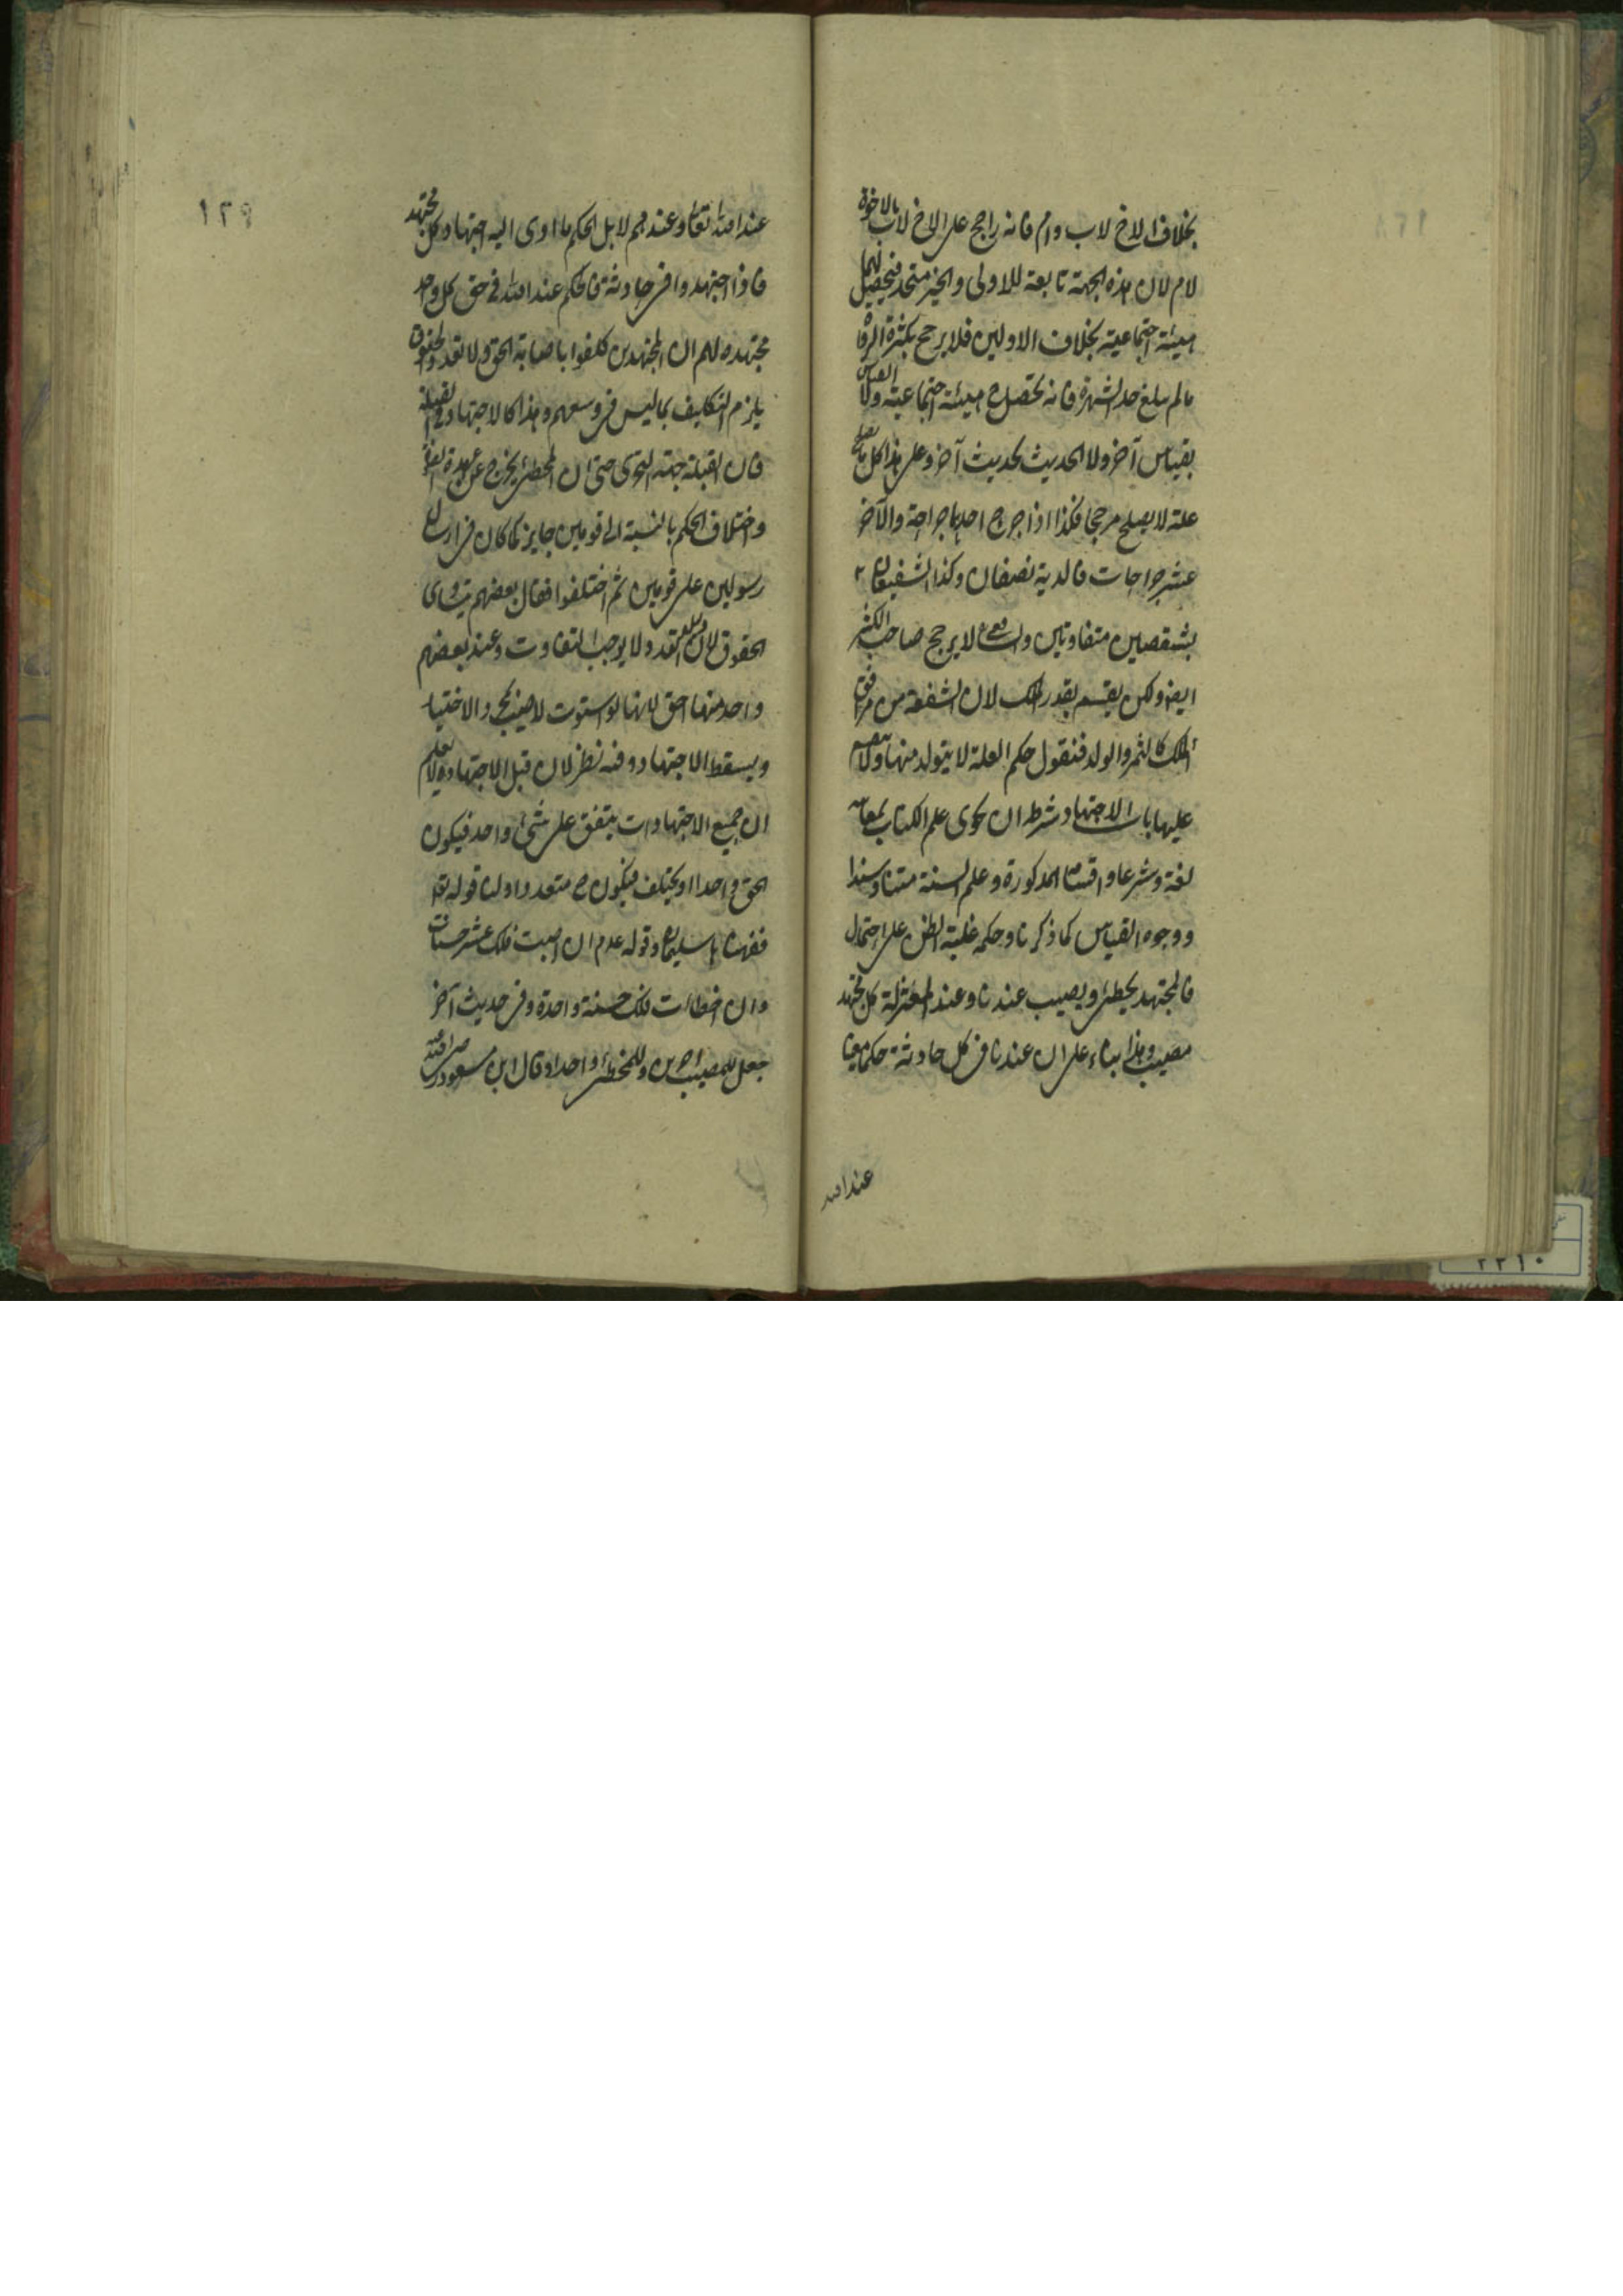 بخلاف الاخ لاب وام فانه راجح على الاخ لاب بالاخوة
لام لان هذه الجهة تابعة للاولى والحيز متحد فيحصل بهما
هيئة اجتماعية بخلاف الاولين فلا يرجح بكثرة الرواة
مالم يبلغ حد الشهرة فانه يحصل ح هيئة اجتماعية ولا القياس
بقياس آخر ولا الحديث بحديث آخر وعلى هذا كل ما يصلح
علة لا يصلح مرجحا فكذا اذا جرح احدهما جراحة والآخر
عشر جراحات فالدية نصفان وكذا الشفيعان
بشقصين متفاوتين لا يرجح صاحب الكثير
ايضا ولكن يقسم بقدر الملك لان الشفعة من مرافق
الملك كالثمر والولد فنقول حكم العلة لا يتولد منها ولا ينقسم
عليها باب الاجتهاد شرطه ان يحوى علم الكتاب بمعانيه
لغة وشرعا واقسامه المذكورة وعلم السنة متنا وسندا
ووجوه القياس كما ذكرنا وحكمه غلبة الظن على احتمال
فالمجتهد يخطئ ويصيب عندنا وعند المعتزلة كل مجتهد
مصيب وهذا بناء على ان عندنا فى كل حادثة حكما معينا
عند الله
١٢٩
عند الله تعالى وعندهم لا بل الحكم ما ادى اليه اجتهاد كل مجتهد
فاذا اجتهدوا فى حادثة فالحكم عند الله فى حق كل واحد
مجتهده لهم ان المجتهدين كلفوا باصابة الحق ولا تعدد الحقوق
يلزم التكليف بما ليس فى وسعهم وهذا كالاجتهاد فى القبلة
فان القبلة جهة التحرى حتى ان المخطئ يخرج عن عهدة الصلوة
واختلاف الحكم بالنسبة الى قومين جايز كما كان فى ارسال
رسولين على قومين ثم اختلفوا فقال بعضهم بتساوى
الحقوق لان التعدد لا يوجب التفاوت وعند بعضهم
واحد منها احق لانها لو استوت لاصيب بمجرد الاختيار
ويسقط الاجتهاد وفيه نظر لان قبل الاجتهاد لا يعلم
ان جميع الاجتهادات يتفق على شئ واحد فيكون
الحق واحدا او يختلف فيكون ح متعددا ولنا قوله تعا
ففهمناها سليمان وقوله عدم ان اصبت فلك عشر حسنات
وان اخطات فلك حسنة واحدة وفى حديث آخر
جعل للمصيب اجرين وللمخطئ واحدا وقال ابن مسعود رضى الله عنه